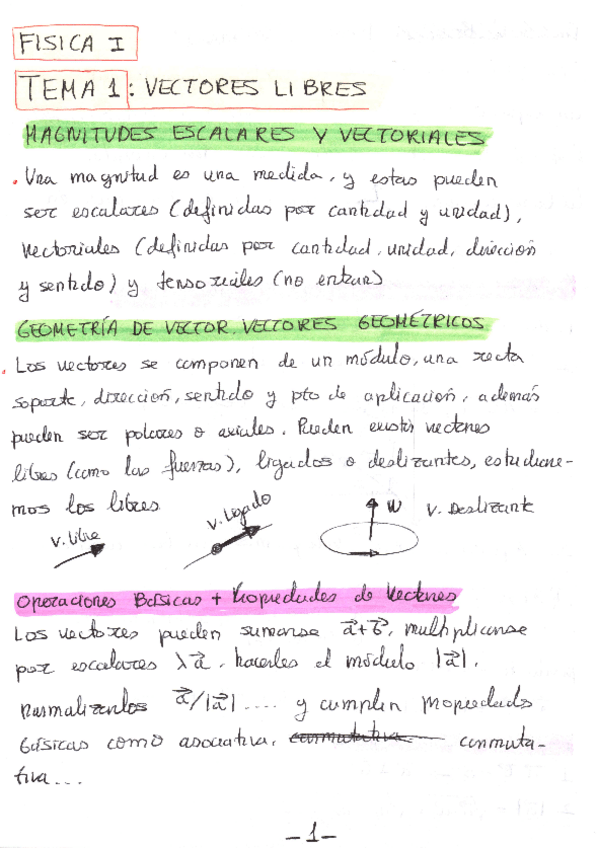 FISICA I
TEMA 1: VECTORES LIBRES
MAGNITUDES ESCALARES Y VECTORIALES
. Una magnitud es una medida, y estas pueden
ser escalares (definidas por cantidad y unidad),
vectoriales (definidas por cantidad, unidad, dirección
y sentido) y tensoriales (no entran)
GEOMETRÍA DE VECTOR. VECTORES GEOMÉTRICOS
. Los vectores se componen de un módulo, una recta
soporte, dirección, sentido y pto de aplicación, además
pueden ser polares o axiales. Pueden existir vectores
libres (como las fuerzas), ligados o deslizantes, estudiare-
mos los libres
V. libre
V. Ligado
W
V. Deslizante
Operaciones Básicas + Propiedades de Vectores
Los vectores pueden sumarse a⃗+b⃗, multiplicarse
por escalares λa⃗, hacerles el módulo |a⃗|,
Normalizarlos a⃗/|a⃗| .... y cumplen propiedades
básicas como asociativa, conmutativa conmuta-
tiva...
-1-